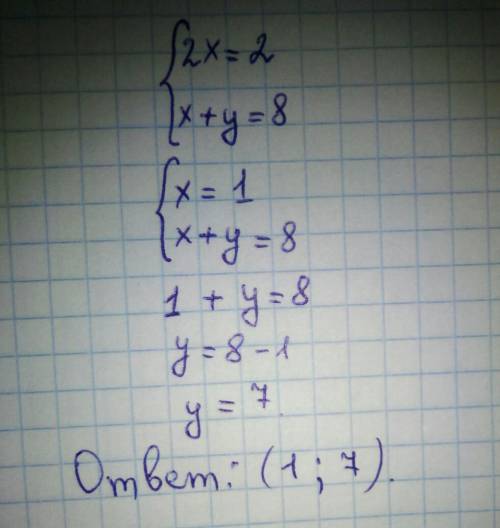 {2x = 2
x + y = 8
{x = 1
x + y = 8
1 + y = 8
y = 8 - 1
y = 7.
Ответ: (1; 7).